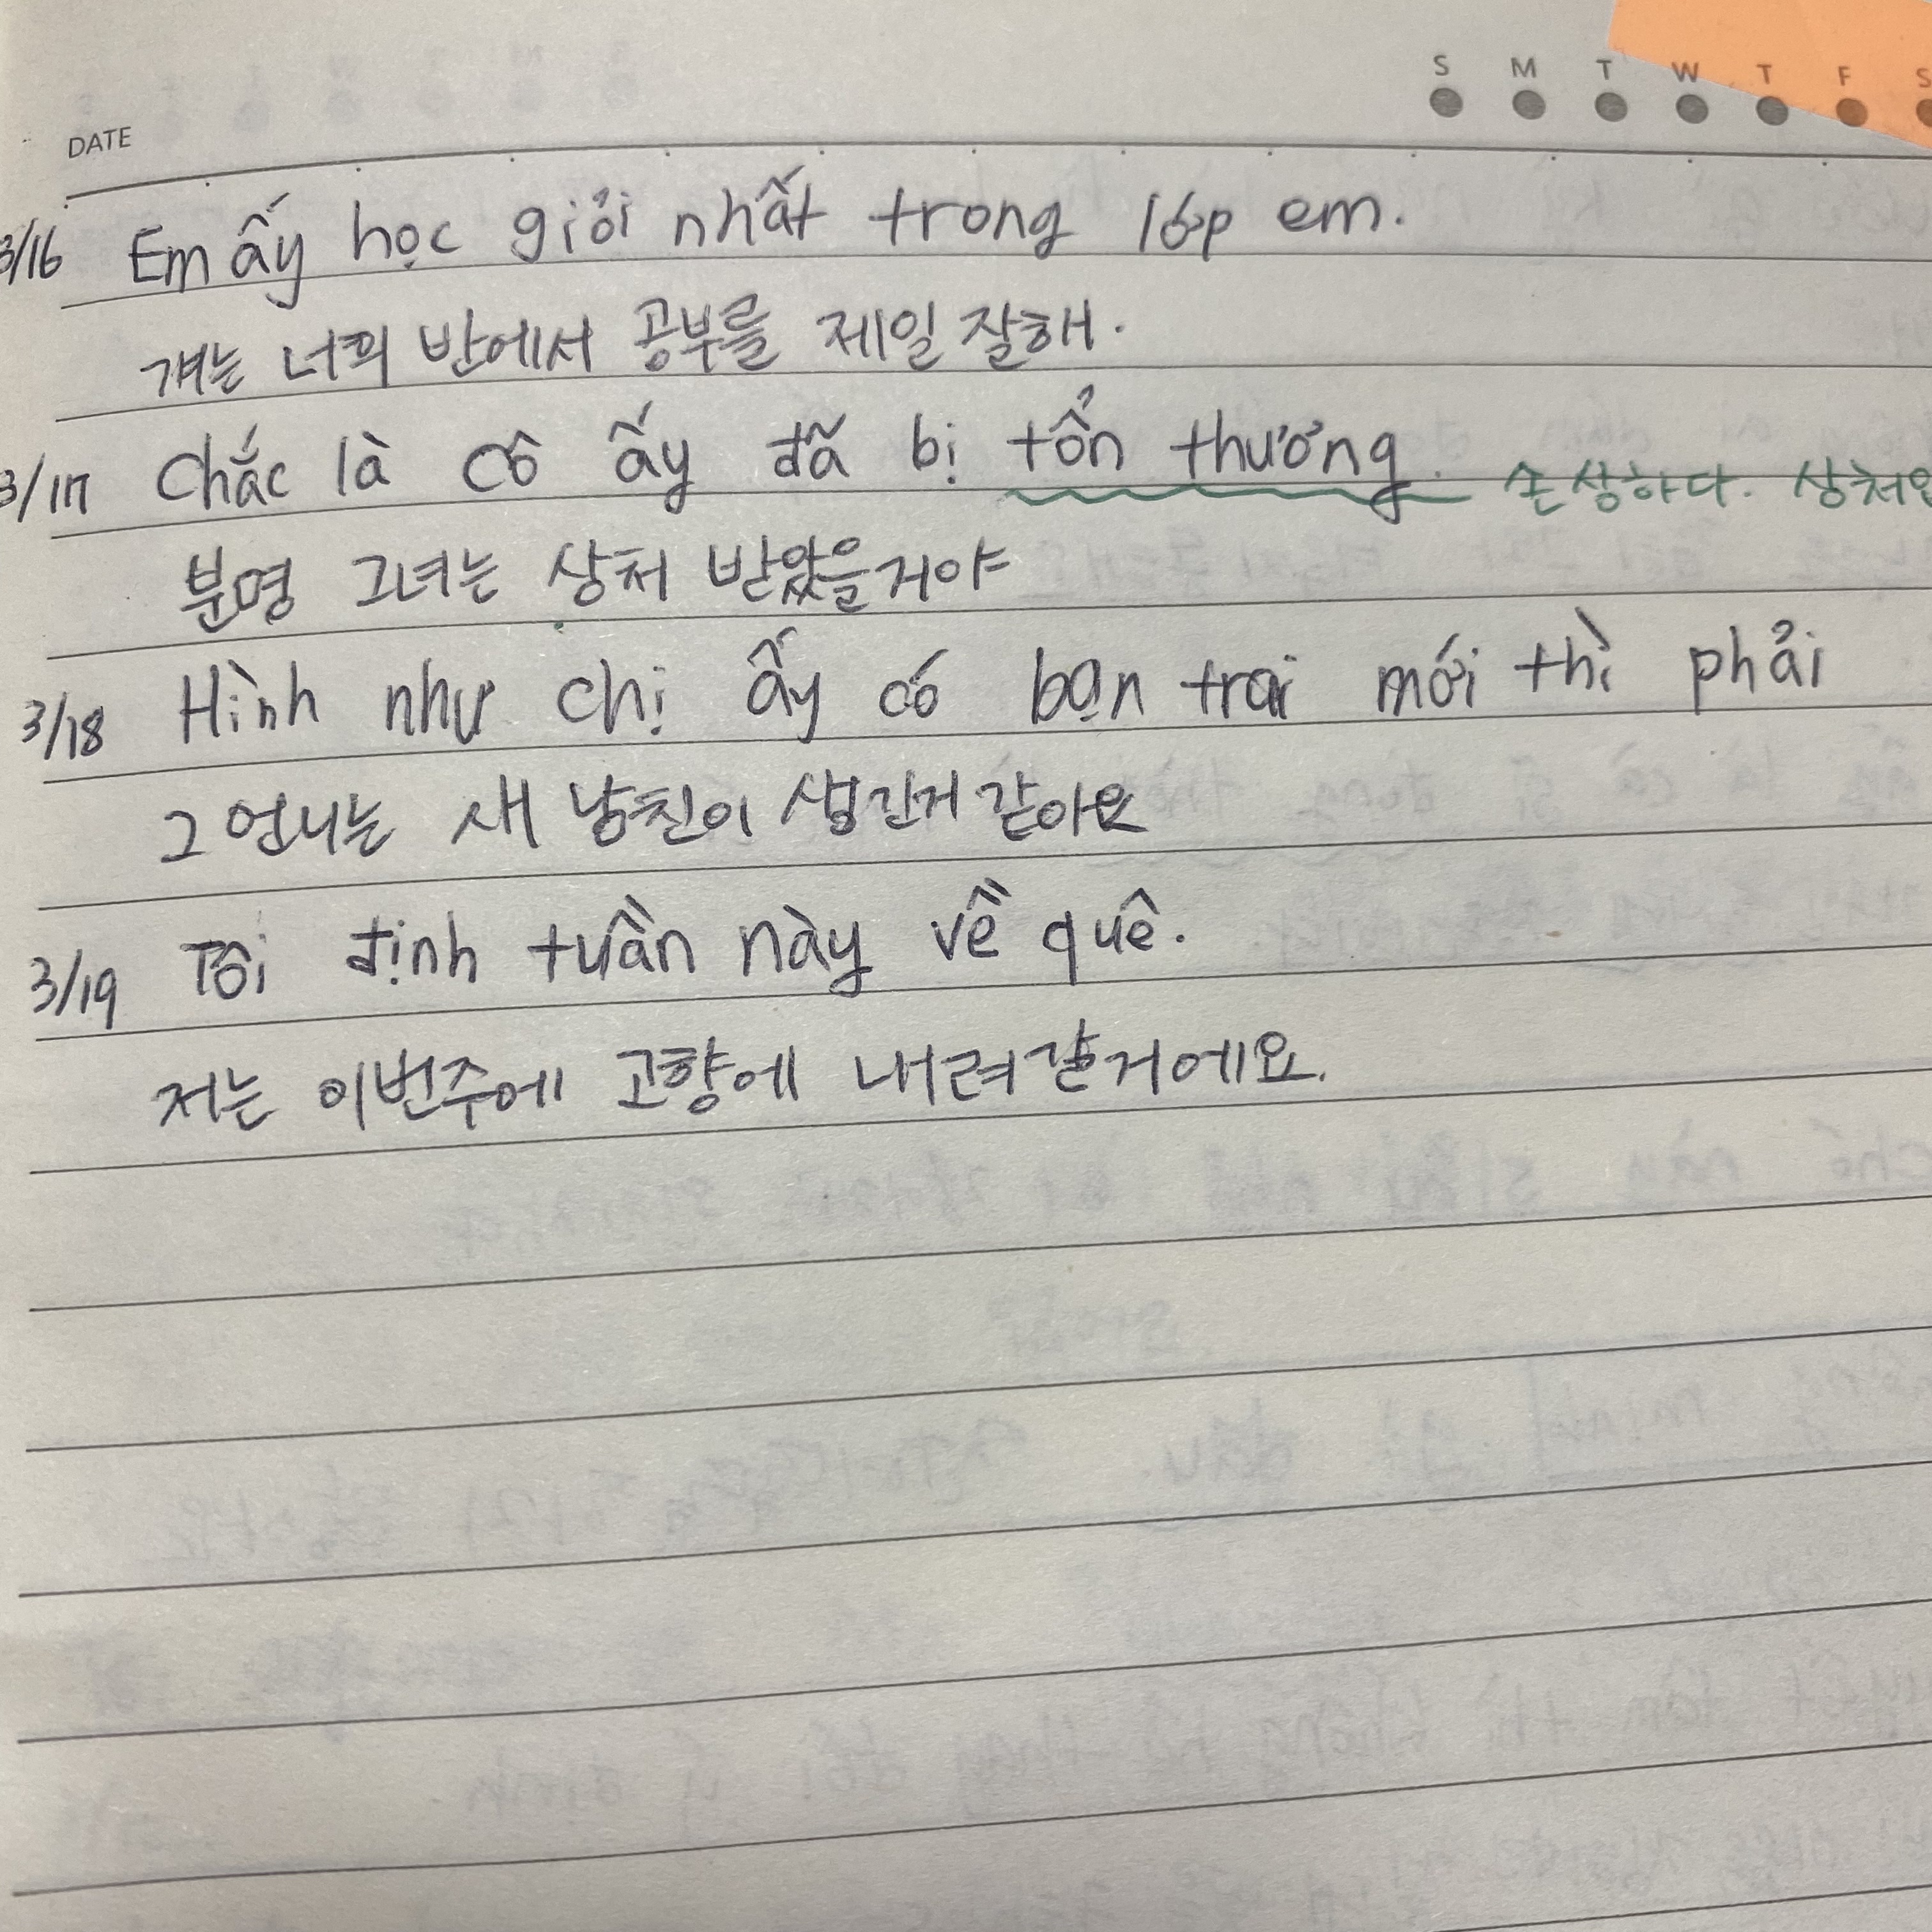 S M T W T F S
DATE
3/16 Em ấy học giỏi nhất trong lớp em.
걔는 너희 반에서 공부를 제일 잘해.
3/17 Chắc là cô ấy đã bị tổn thương. 손상하다. 상처입
분명 그녀는 상처 받았을거야
3/18 Hình như chị ấy có bạn trai mới thì phải
그 언니는 새 남친이 생긴거 같아요
3/19 Tôi định tuần này về quê.
저는 이번주에 고향에 내려갈거에요.